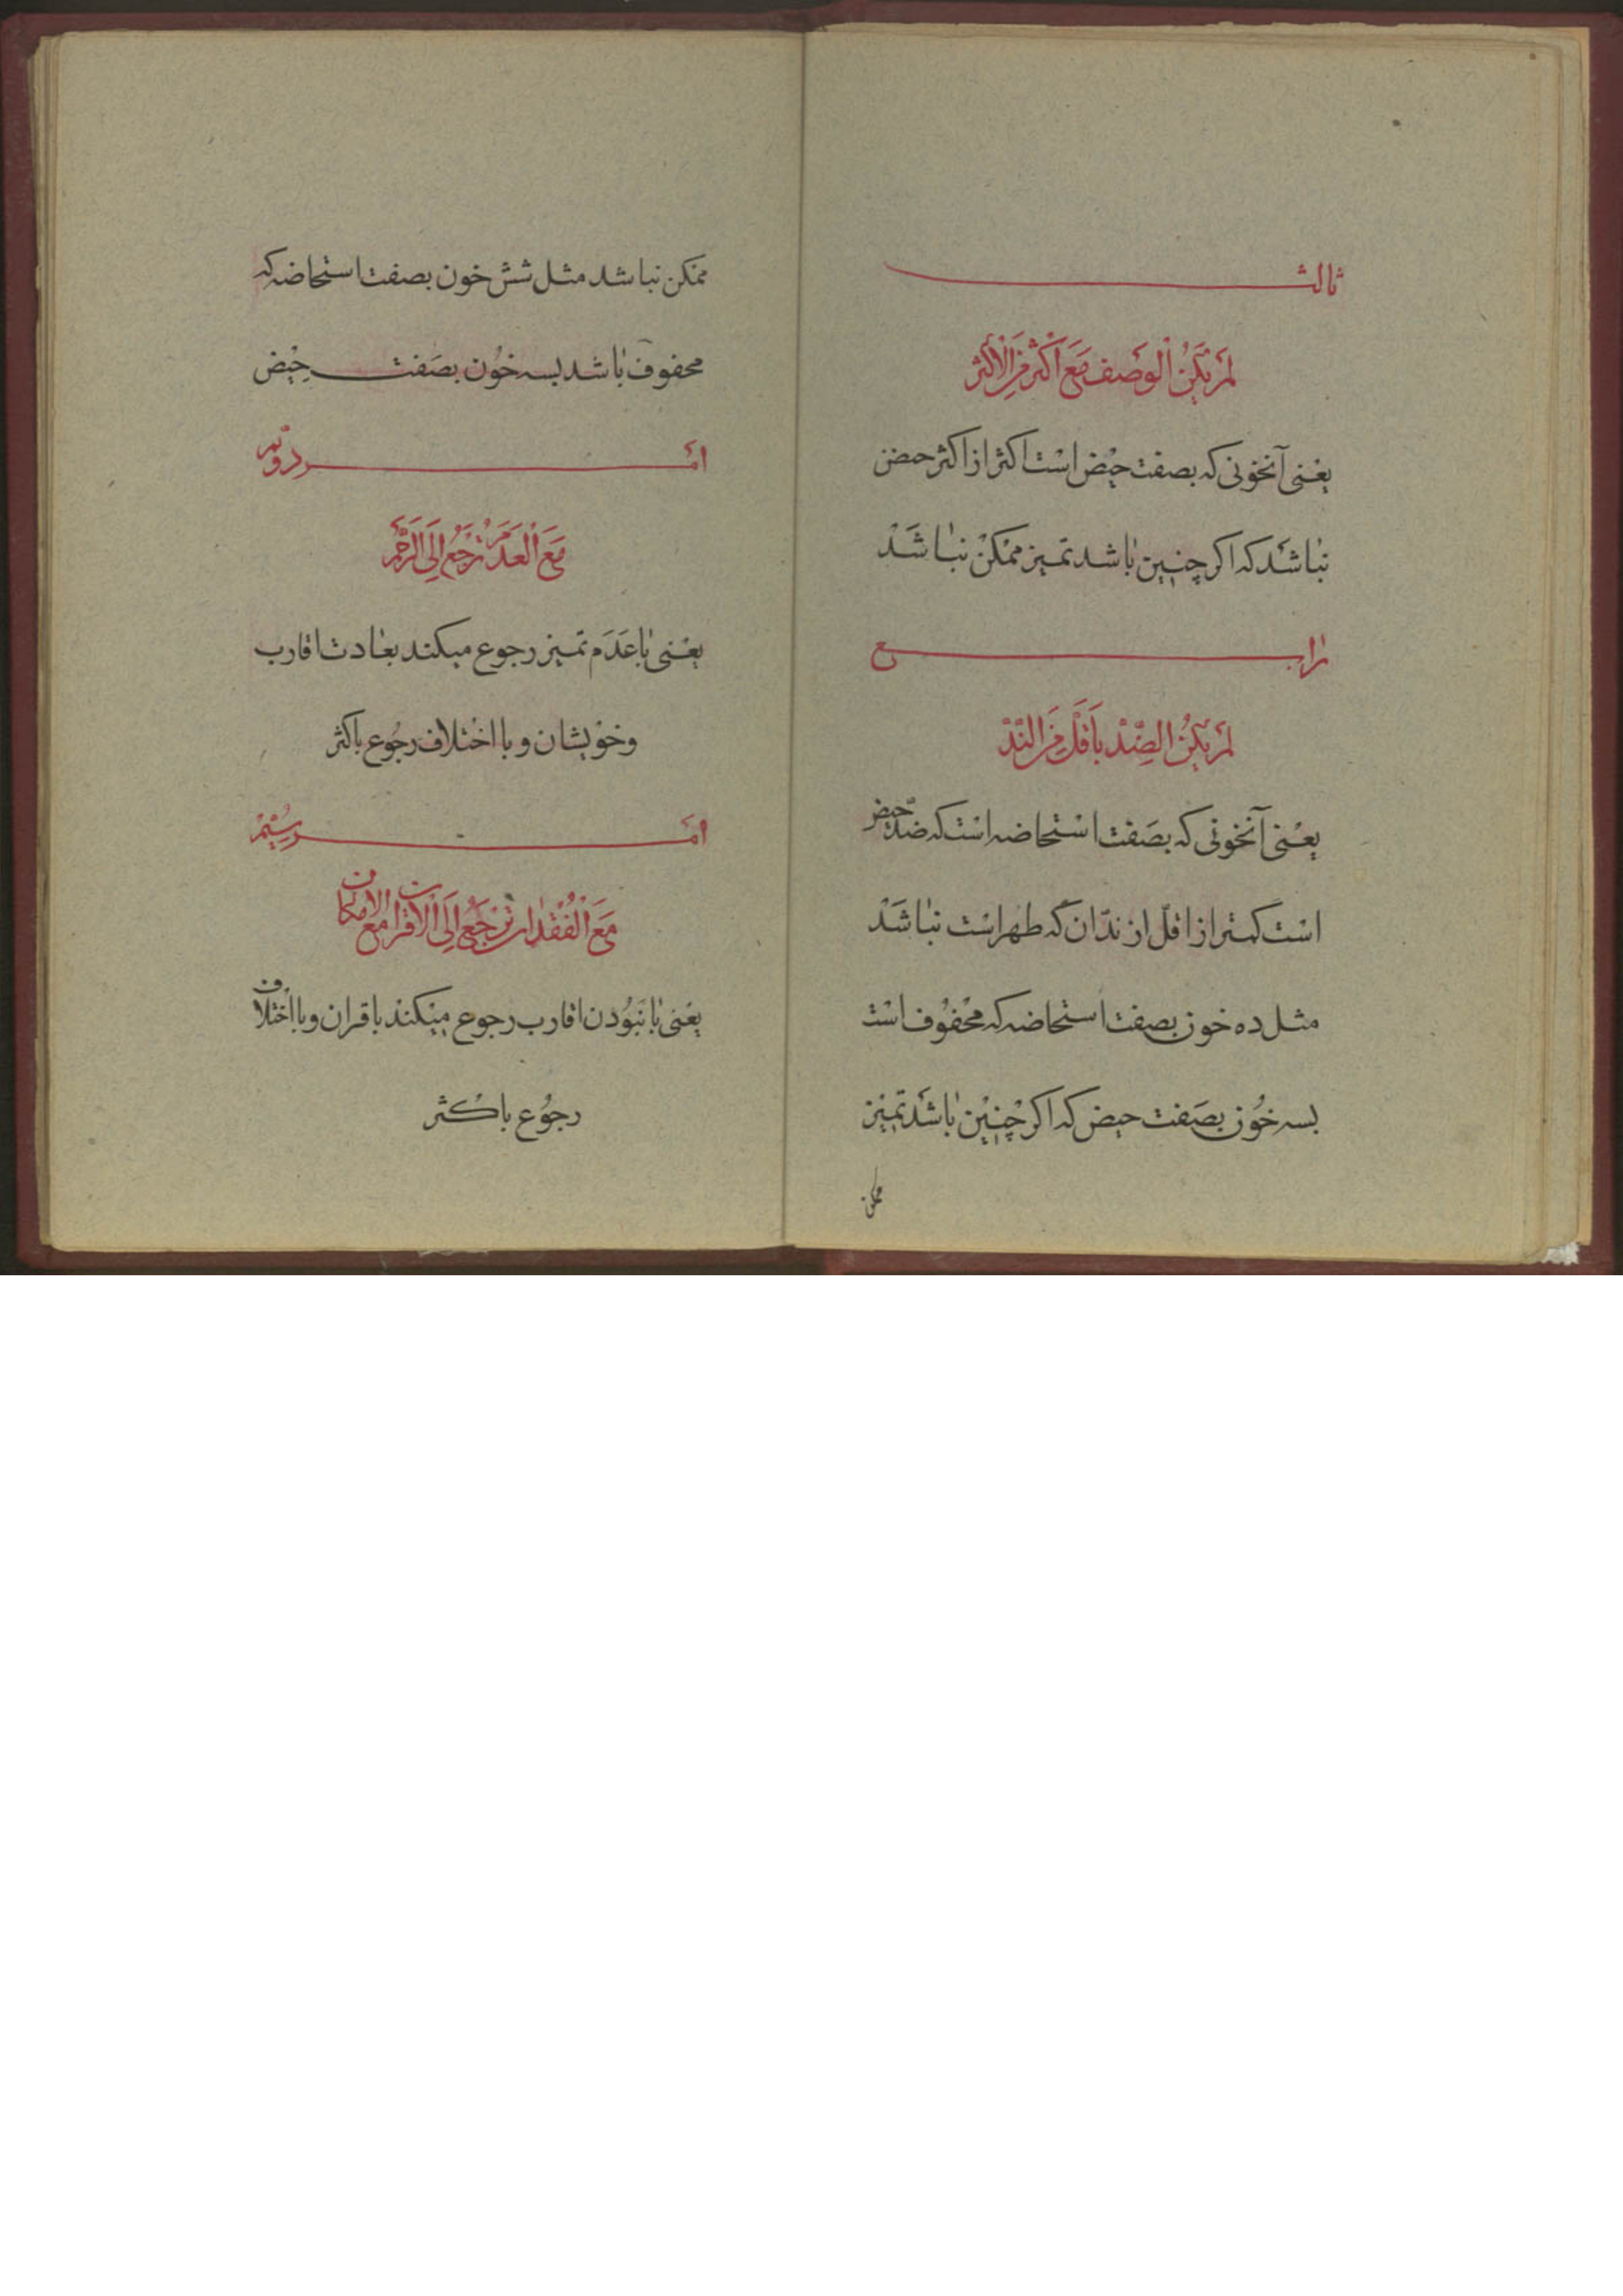 ثالث
لَمْ يَكُنِ الْوَصف مَعَ اَكْثَر مِنَ الْاَكْثَر
یعْنی آنخونی که بصفت حیْض اسْت اکثر از اکثر حیض
نباشَد که اکر چنین باشد تمیز ممْکنْ نباشَدْ
رابع
لَمْ يَكُنِ الضِّدْ بِاَقَلْ مِنَ النِّدْ
یعْنی آنخونی که بصَفت اسْتحاضه اسْت که ضدّ حیض
اسْت کمتر از اقلّ از ندّ آن که طهر اسْت نباشَدْ
مثل ده خون بصفت استحاضه که محْفوُف اسْت
بسه خوُن بصَفت حیض که اکر چْنیْن باشَد تمیْز
ممکن
ممْکن نباشد مثل شش خون بصفت استحاضه که
محفوف باشد بسه خوُن بصَفت حیْض
امر دوّیم
مَعَ الْعَدَمْ تَرْجَعُ اِلَی الرَّحِمْ
یعْنی با عَدَم تمیز رجوع میکند بعادت اقارب
وخوْیشان و با اختلاف رجُوع باکثر
امر سیُّمْ
مَعَ الْفُقْدان تَرْجَعُ اِلَی الْاَقران مع الامکان
یعْنی با نبوُدن اقارب رجوع میْکند باقران و با اخْتلاف
رجوُع باکْثر